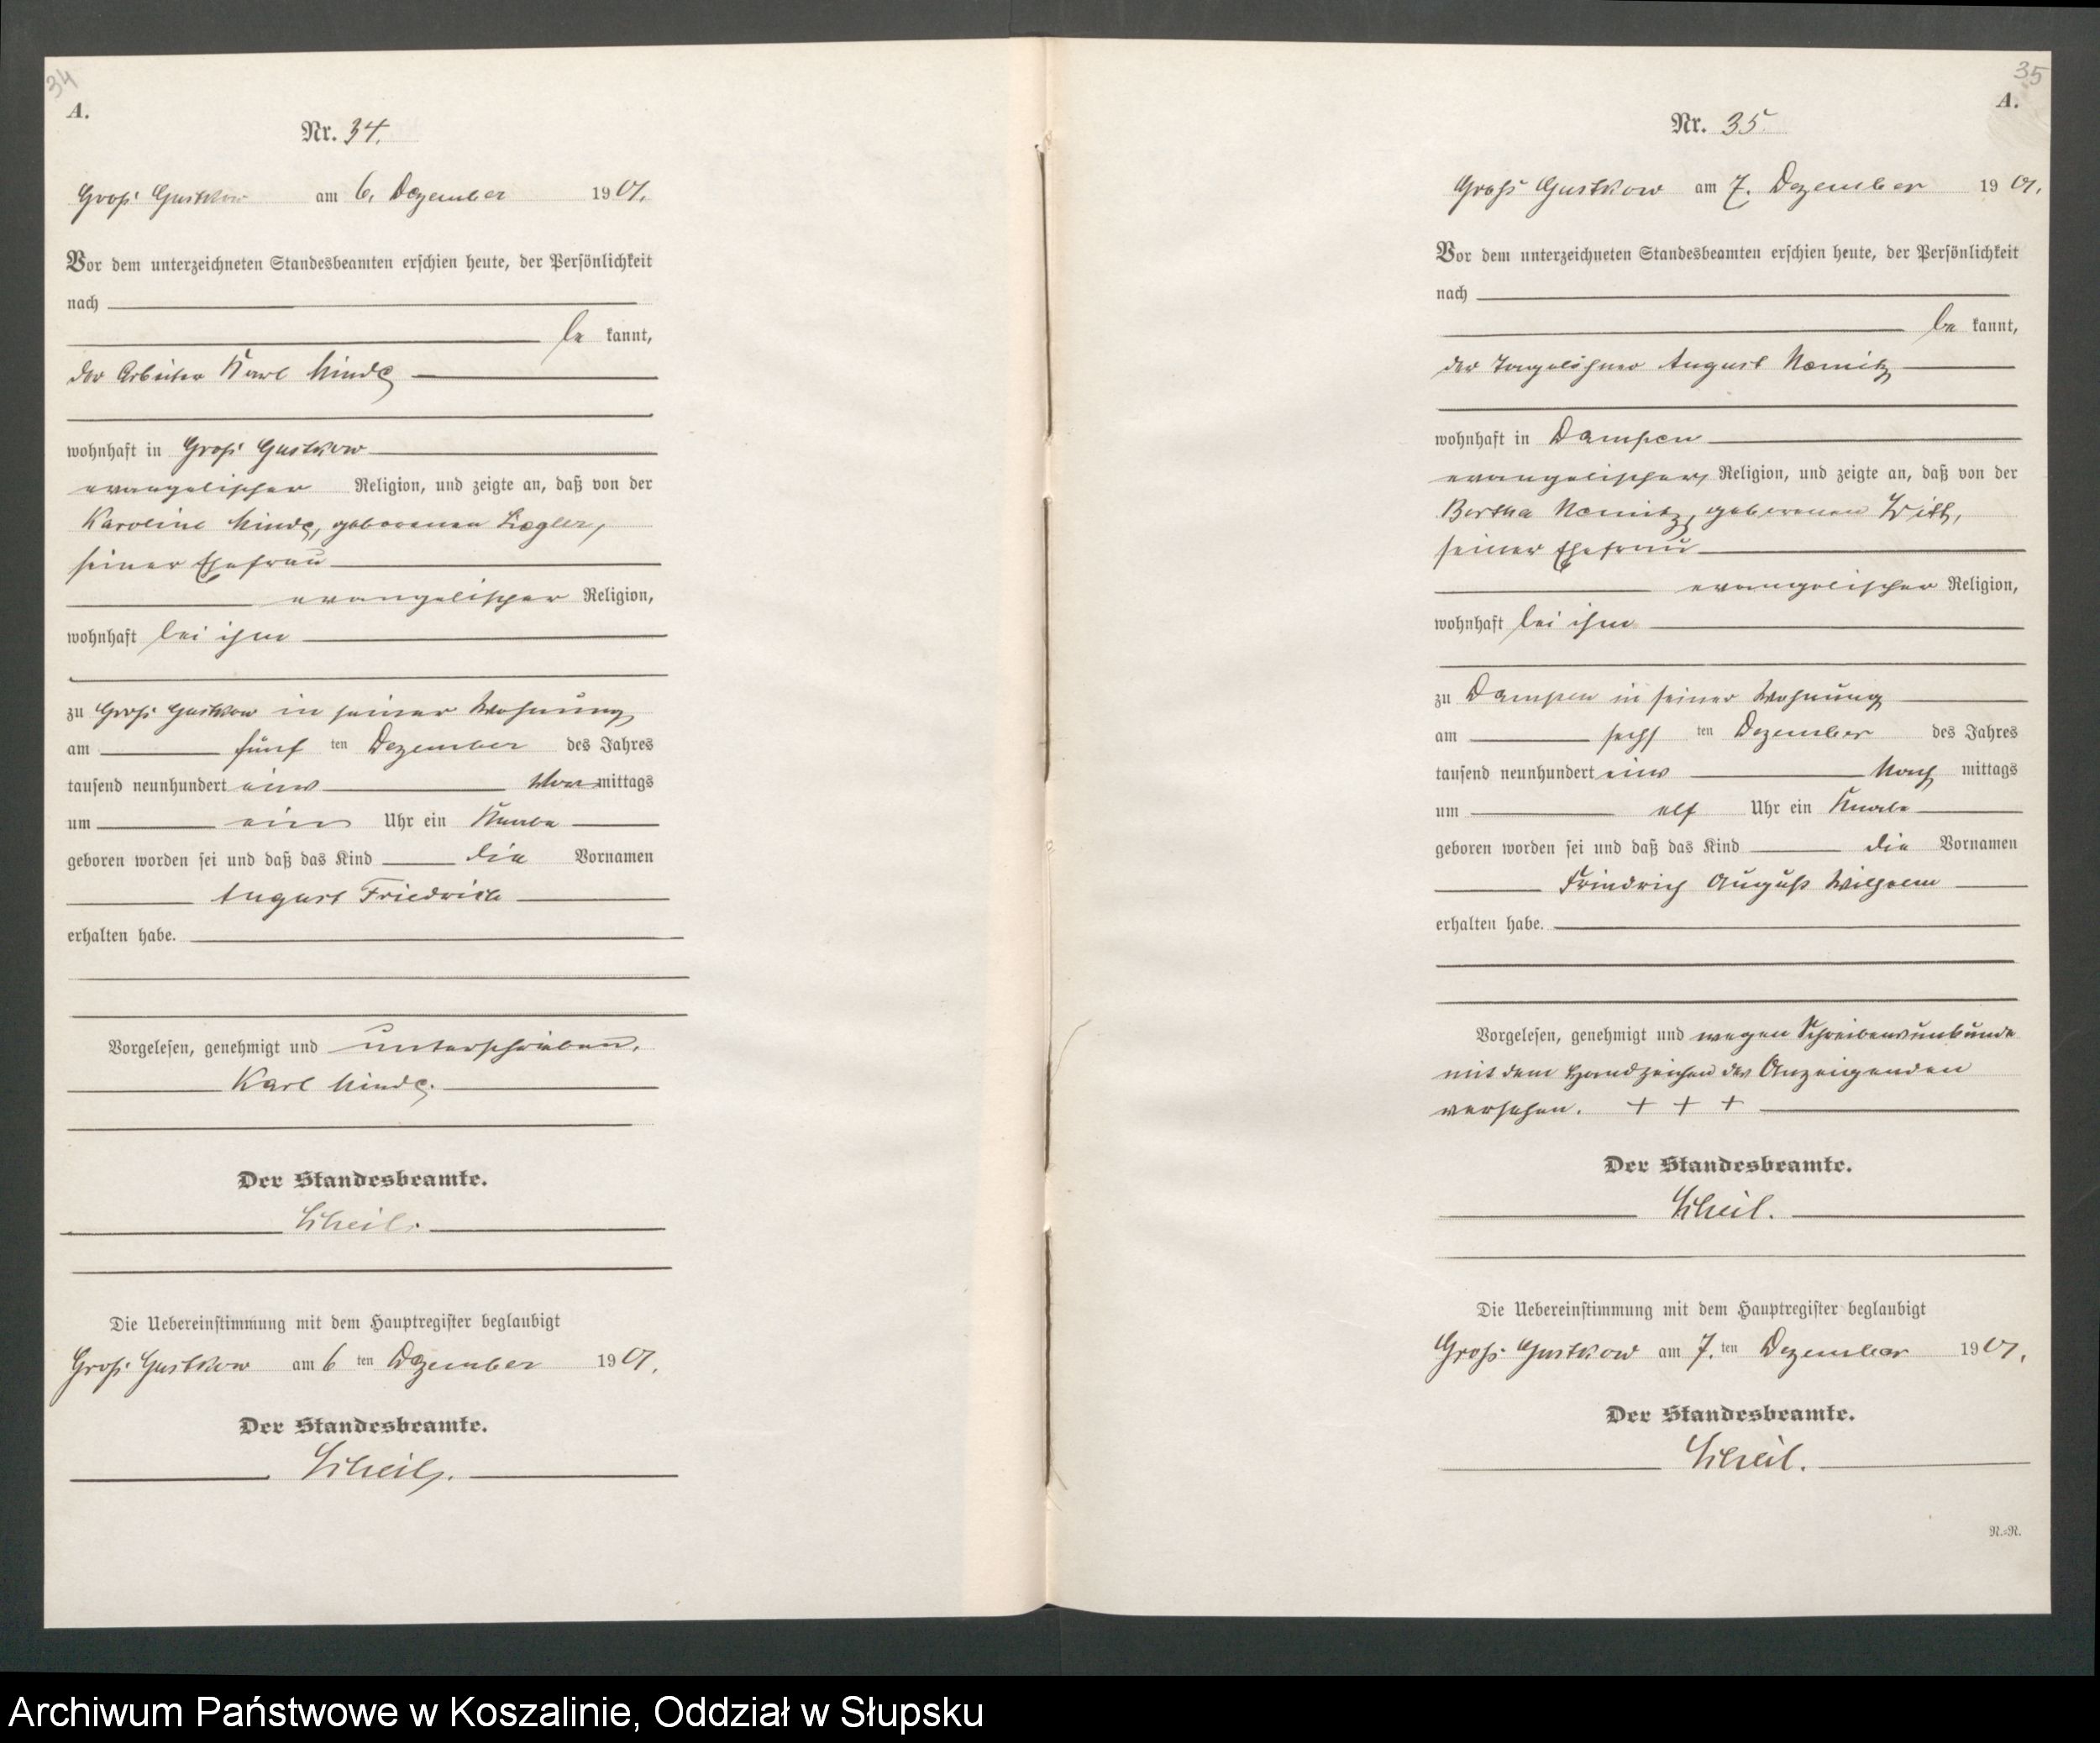 34
A.
Nr. 34.
Groß Gustkow am 6. Dezember 1901.
Vor dem unterzeichneten Standesbeamten erschien heute, der Persönlichkeit
nach
be kannt,
der Arbeiter Karl
wohnhaft in Groß Gustkow
evangelischer Religion, und zeigte an, daß von der
Karoline geborenen
seiner Ehefrau
evangelischer Religion,
wohnhaft bei ihm
zu Groß Gustkow in seiner Wohnung
am fünf ten Dezember des Jahres
tausend neunhundert eins Vor mittags
um ein Uhr ein Knabe
geboren worden sei und daß das Kind die Vornamen
August Friedrich
erhalten habe.
Vorgelesen, genehmigt und unterschrieben.
Karl
Der Standesbeamte.
Scheil.
Die Uebereinstimmung mit dem Hauptregister beglaubigt
Groß Gustkow am 6 ten Dezember 1901.
Der Standesbeamte.
Scheil.
35
A.
Nr. 35
Groß Gustkow am 7. Dezember 1901.
Vor dem unterzeichneten Standesbeamten erschien heute, der Persönlichkeit
nach
be kannt,
der Tagelöhner August Nemitz
wohnhaft in Dampen
evangelischer Religion, und zeigte an, daß von der
Bertha Nemitz, geborenen Witt,
seiner Ehefrau
evangelischer Religion,
wohnhaft bei ihm
zu Dampen in seiner Wohnung
am sechs ten Dezember des Jahres
tausend neunhundert eins Nach mittags
um elf Uhr ein Knabe
geboren worden sei und daß das Kind die Vornamen
Friedrich August Wilhelm
erhalten habe.
Vorgelesen, genehmigt und wegen Schreibensunkunde
mit dem Handzeichen des Anzeigenden
versehen. + + +
Der Standesbeamte.
Scheil.
Die Uebereinstimmung mit dem Hauptregister beglaubigt
Groß Gustkow am 7. ten Dezember 1901.
Der Standesbeamte.
Scheil.
N.-N.
Archiwum Państwowe w Koszalinie, Oddział w Słupsku